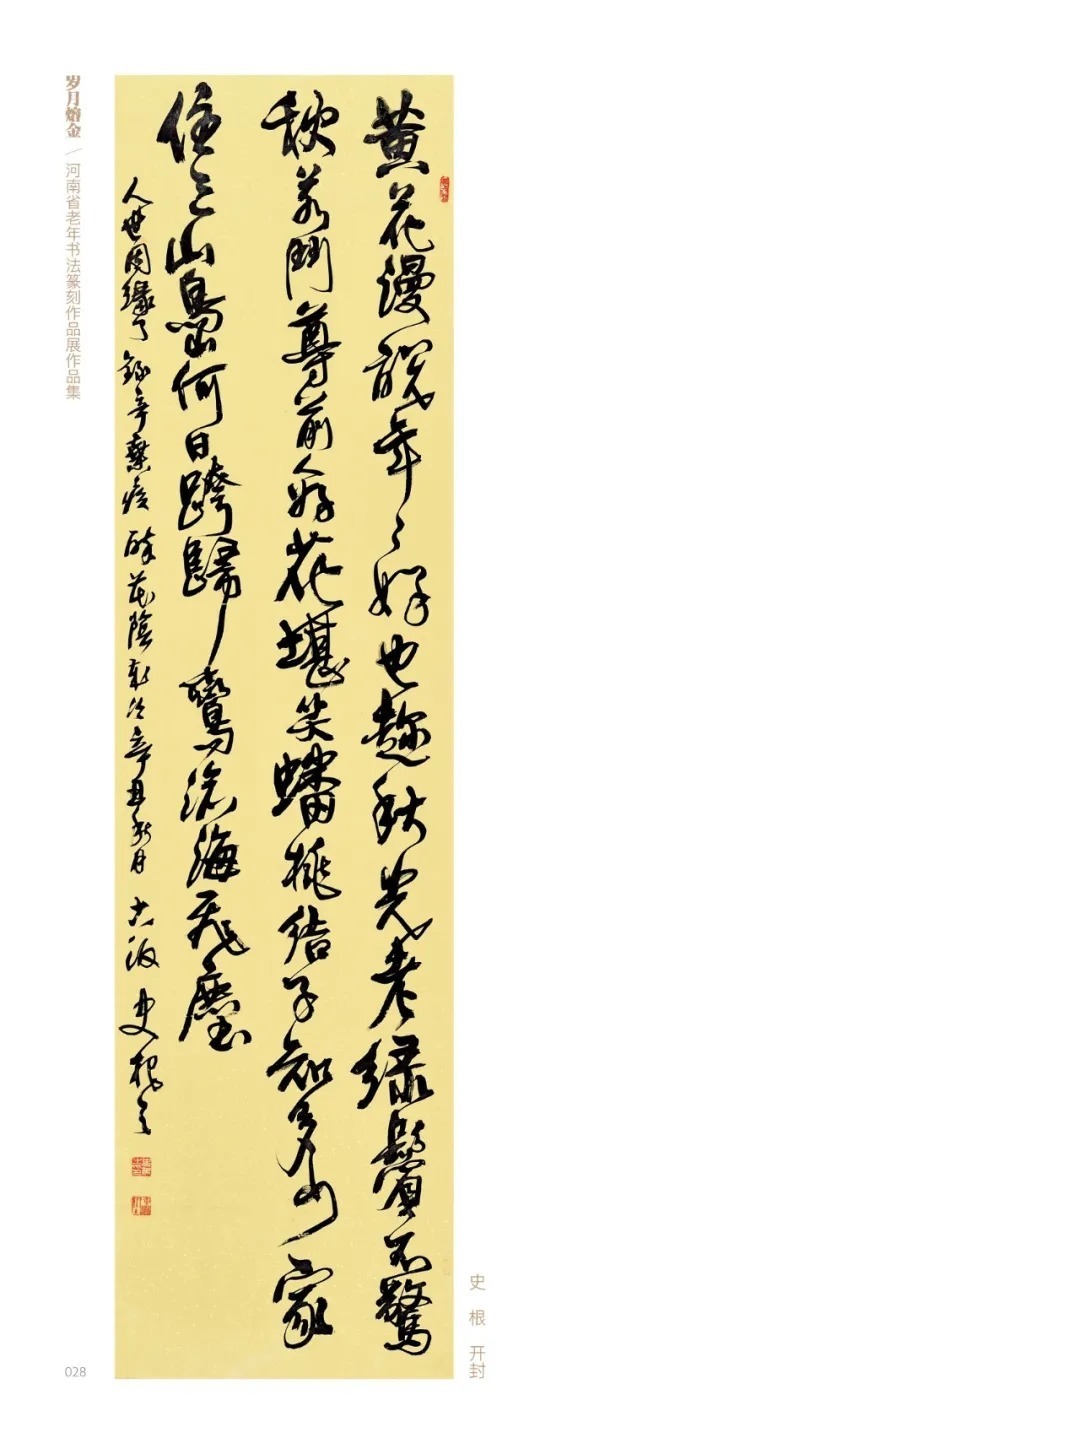 岁月熔金／河南省老年书法篆刻作品展作品集
黄花漫説年々好也趁秋光老绿鬓不驚
秋若鬥尊前人好花堪笑蟠桃结子知多少家
住三山島何日跨歸鸞滄海飛塵
人世因緣了 錄辛棄疾 醉花陰 辛丑秋月 古汴 史根
史根 开封
028